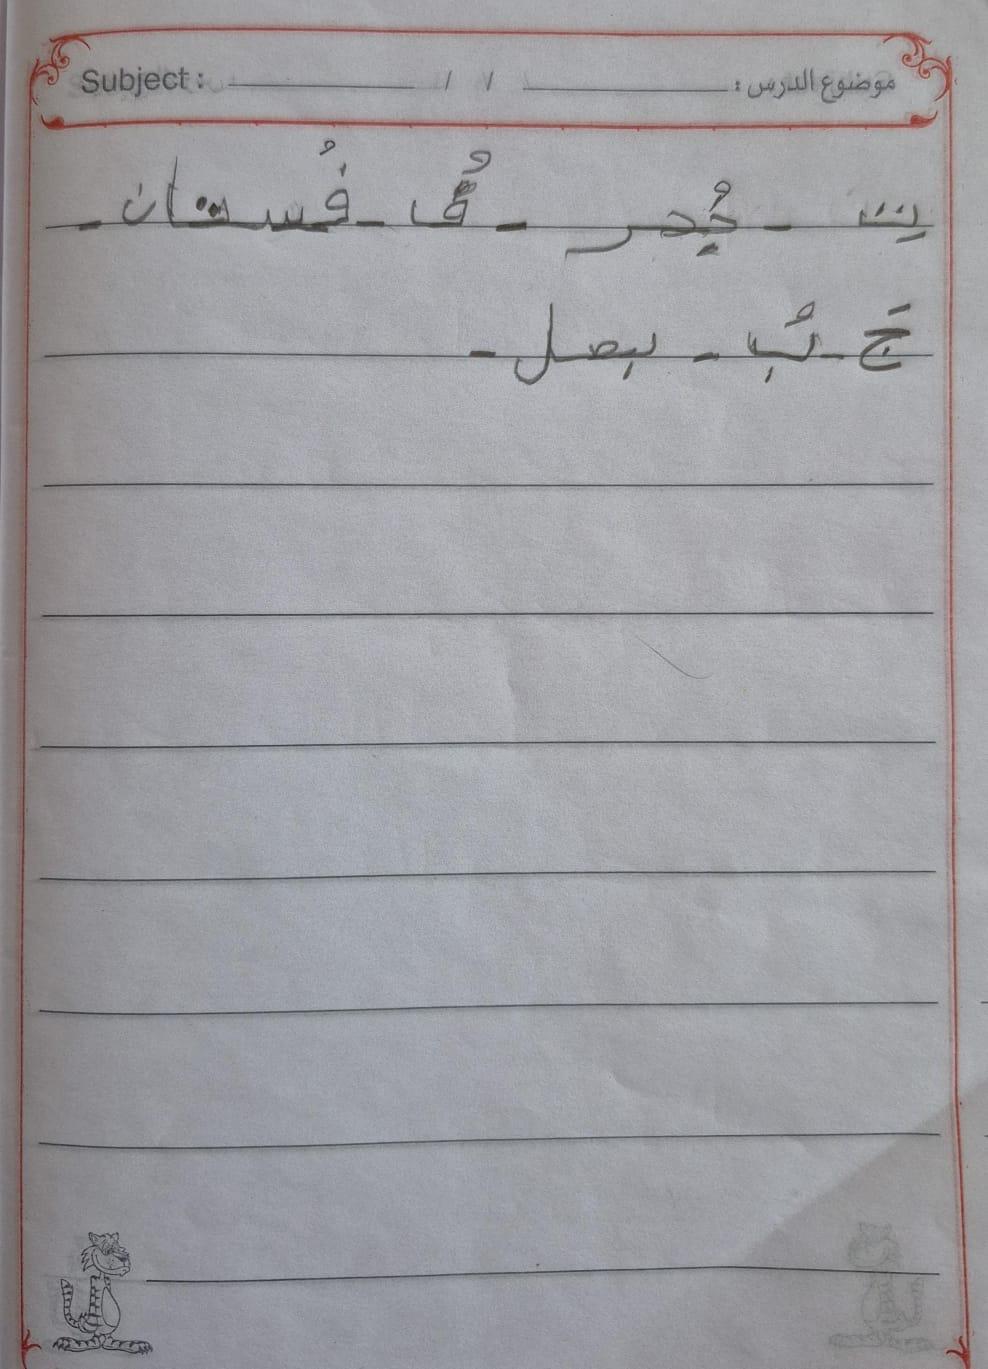 موضوع الدرس : / / Subject :
بِتت - جُحر - فُ - فُستان -
جَ - بُب - بصل -